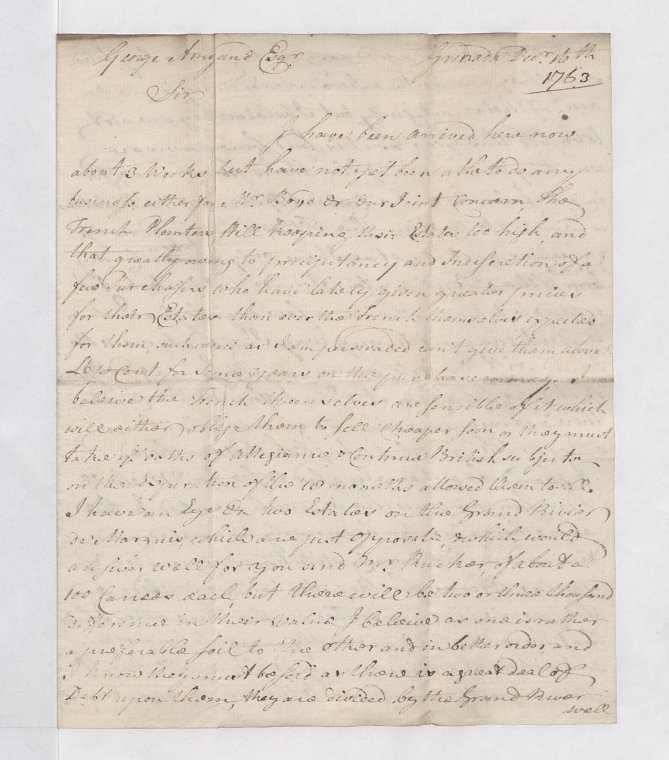 George Amyand Esqr Grenada Decr. 16th
1763
Sir
I have been arrived here now
about 3 Weeks but have not yet been able to do any
business either for Mr. Boyd or our Joint Concern The
French Planters still keeping their Estates too high, and
that greatly owing to precipitancy and Indiscretion of a
few Purchasers who have lately given greater prices
for their Estates than ever the French themselves expected
for them, such indeed as I am perswaded can't give them above
Cent for some years on the purchase money. I
beleive the French themselves are sensible of it which
will either oblige them to sell cheaper soon or they must
take ye oaths of Allegiance & Continue British subjects
on the Expiration of the 18 months allowed them to sell.
I have an Eye on two Estates on the Grand River
de Marquis, which are just opposite, & which would
answer well for you and Mr. Rucker, of about a
100 Carees each, but there will be two or three thousand
difference in their value I beleive as one is rather
a preferable soil to the other and in better order and
I know they must be sold as there is a great deal of
Debt upon them, they are divided by the Grand River
well